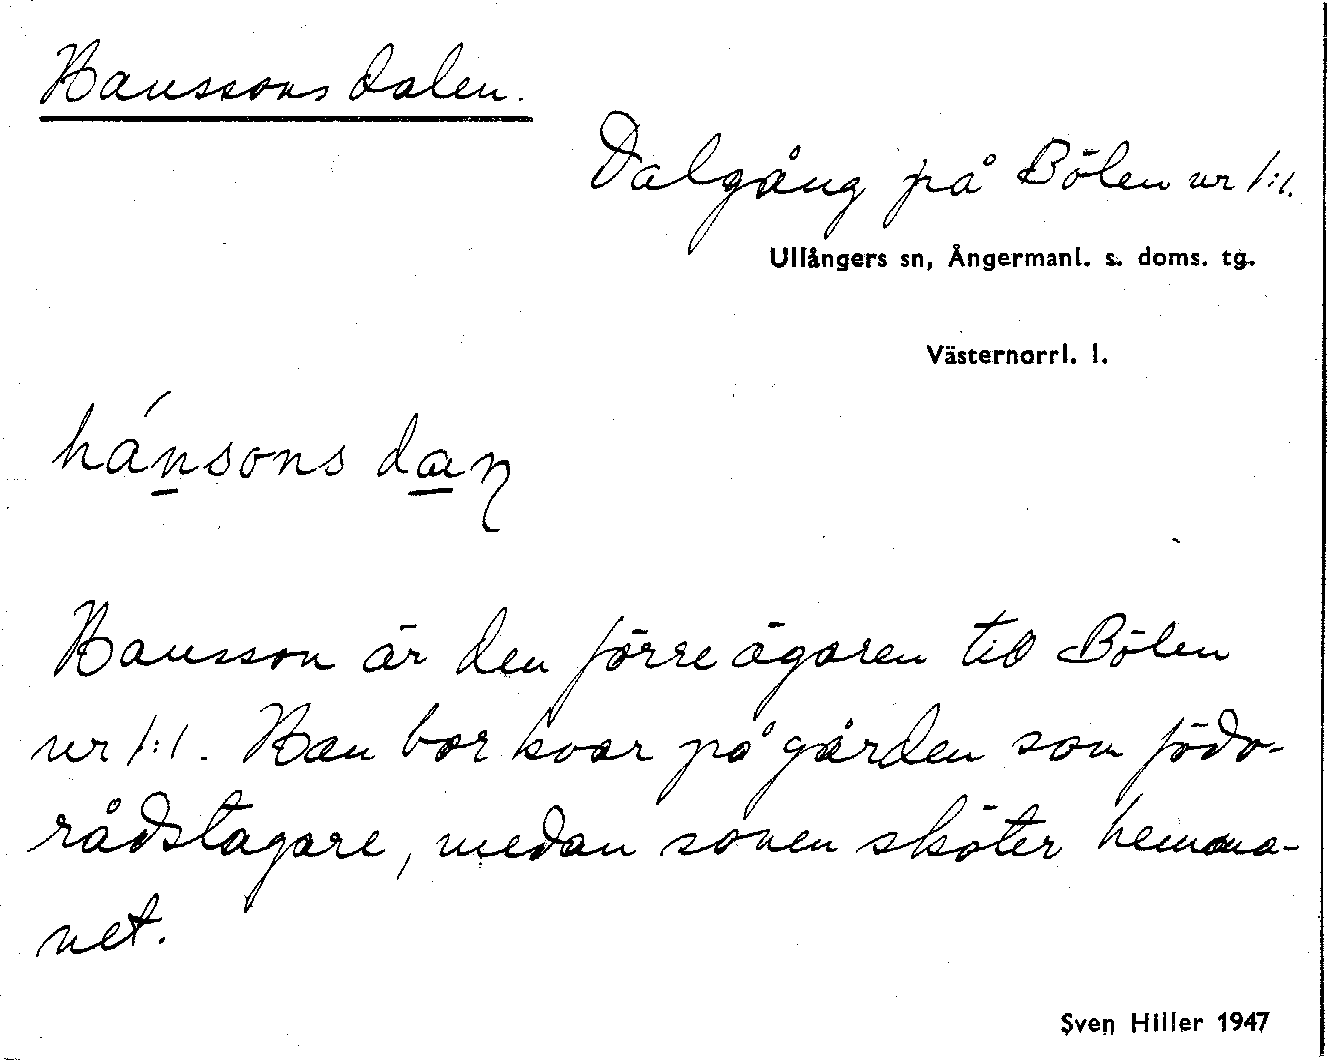 Hanssons dalen.
Dalgång på Bölen nr 1:1.
Ullångers sn, Ångermanl. s. doms. tg.
Västernorrl. l.
hánsons dan
Hansson är den förre ägaren till Bölen
nr 1:1. Han bor kvar på gården som födo-
rådstagare, medan sonen sköter hemma-
net.
Sven Hiller 1947